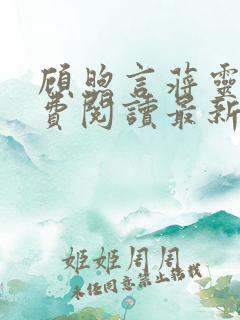 顧煦言蔣靈
費閱讀最新
姬姬周周
未經同意禁止轉載